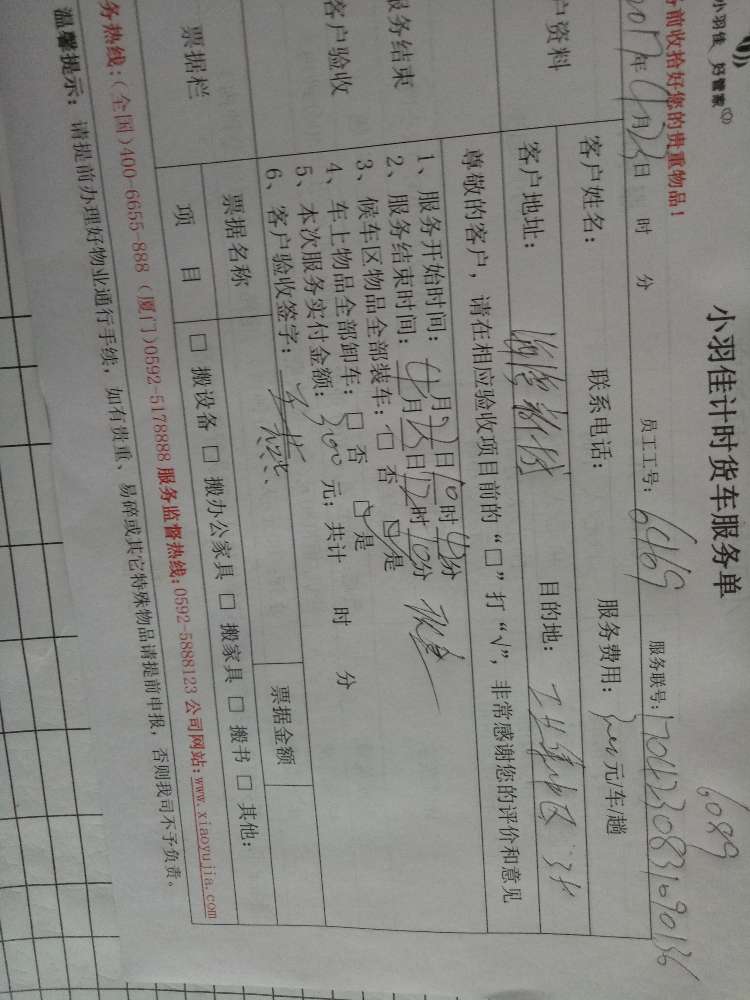 小羽佳 好管家
小羽佳计时货车服务单
务前收拾好您的贵重物品！
6089
2017年4月23日 时 分 员工工号：6469 服务联号：
户资料 客户姓名： 联系电话： 服务费用：200元/车/趟
客户地址： 目的地：
尊敬的客户，请在相应验收项目前的“□”打“√”，非常感谢您的评价和意见
服务结束
客户验收
1、服务开始时间：4月 日10时40分
2、服务结束时间：4月 日12时10分
3、候车区物品全部装车：□否 ☑是
4、车上物品全部卸车：□否 ☑是
5、本次服务实付金额：300元；共计 时 分
6、客户验收签字：
票据栏 票据名称 票据金额
项 目 □搬设备 □搬办公家具 □搬家具 □搬书 □其他：
务热线：(全国)400-6655-888 (厦门)0592-5178888 服务监督热线：0592-5888123 公司网站：www.xiaoyujia.com
温馨提示：请提前办理好物业通行手续，如有贵重、易碎或其它特殊物品请提前申报，否则我司不予负责。